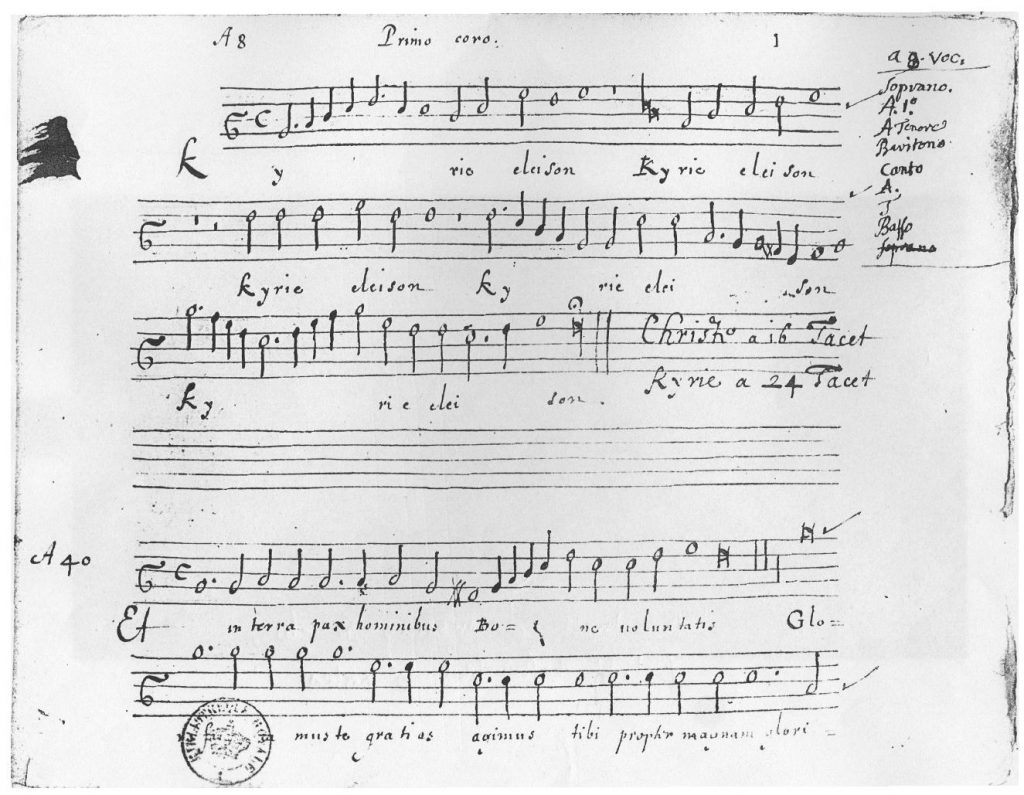 A 8 Primo coro. 1
a 8. voc.
Soprano.
A. 1.º
A Tenore
Baritono
Canto
A.
T
Basso
soprano
Ky rie eleison Kyrie eleison
Kyrie eleison Ky rie elei son
Ky rie elei son.
Christe a 16 Tacet
Kyrie a 24 Tacet
A 40
Et in terra pax hominibus Bo= ne voluntatis Glo=
mus te gratias agimus tibi propter magnam glori=
BIBLIOTHEQUE ROYALE